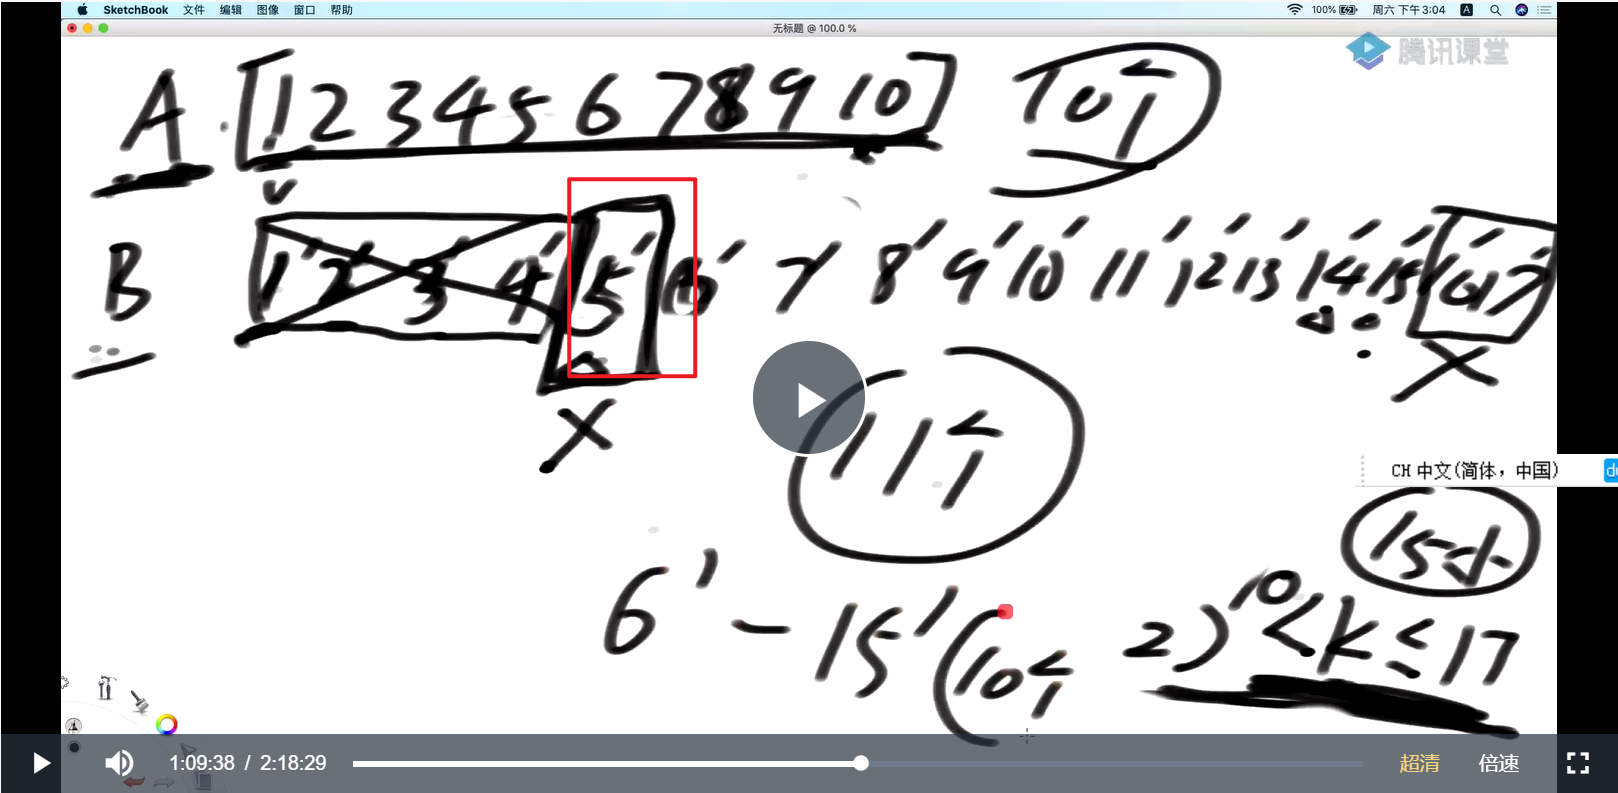 SketchBook 文件 编辑 图像 窗口 帮助 100% 周六 下午3:04 A
无标题 @ 100.0 %
腾讯课堂
A [1 2 3 4 5 6 7 8 9 10] 10个
B 1' 2' 3' 4' 5' 6' 7' 8' 9' 10' 11' 12' 13' 14' 15' 16' 17'
11个
CH 中文(简体，中国)
15小
6' - 15' (10个
2) 10<k≤17
1:09:38 / 2:18:29 超清 倍速